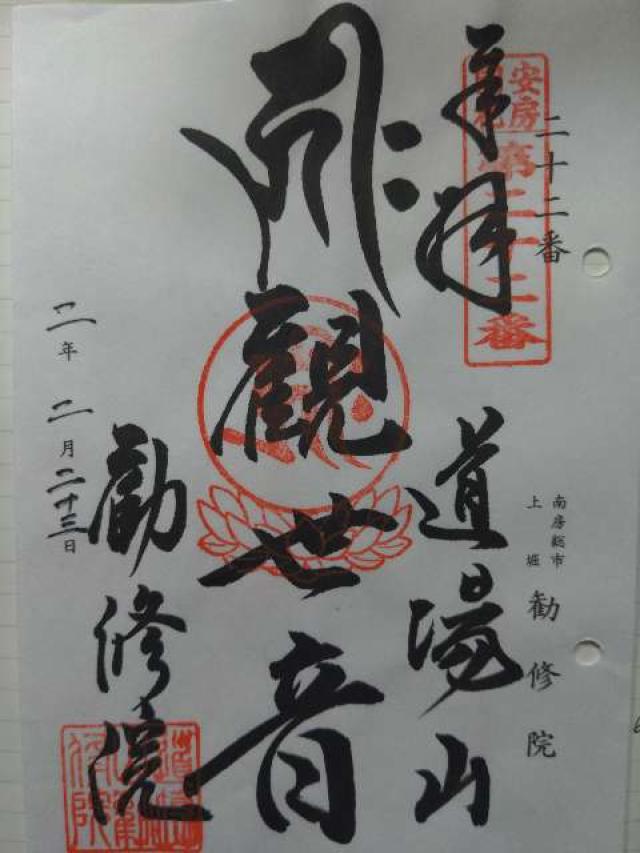 二十二番
南房総市
上堀
勧修院
安房
第二十二番
奉拝
道場山
觀世音
勧修院
二年二月二十三日